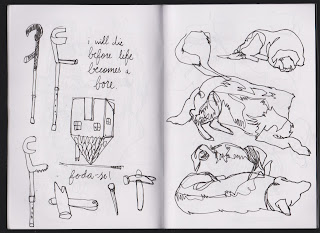 i will die
before life
becomes a
bore.
foda-se!